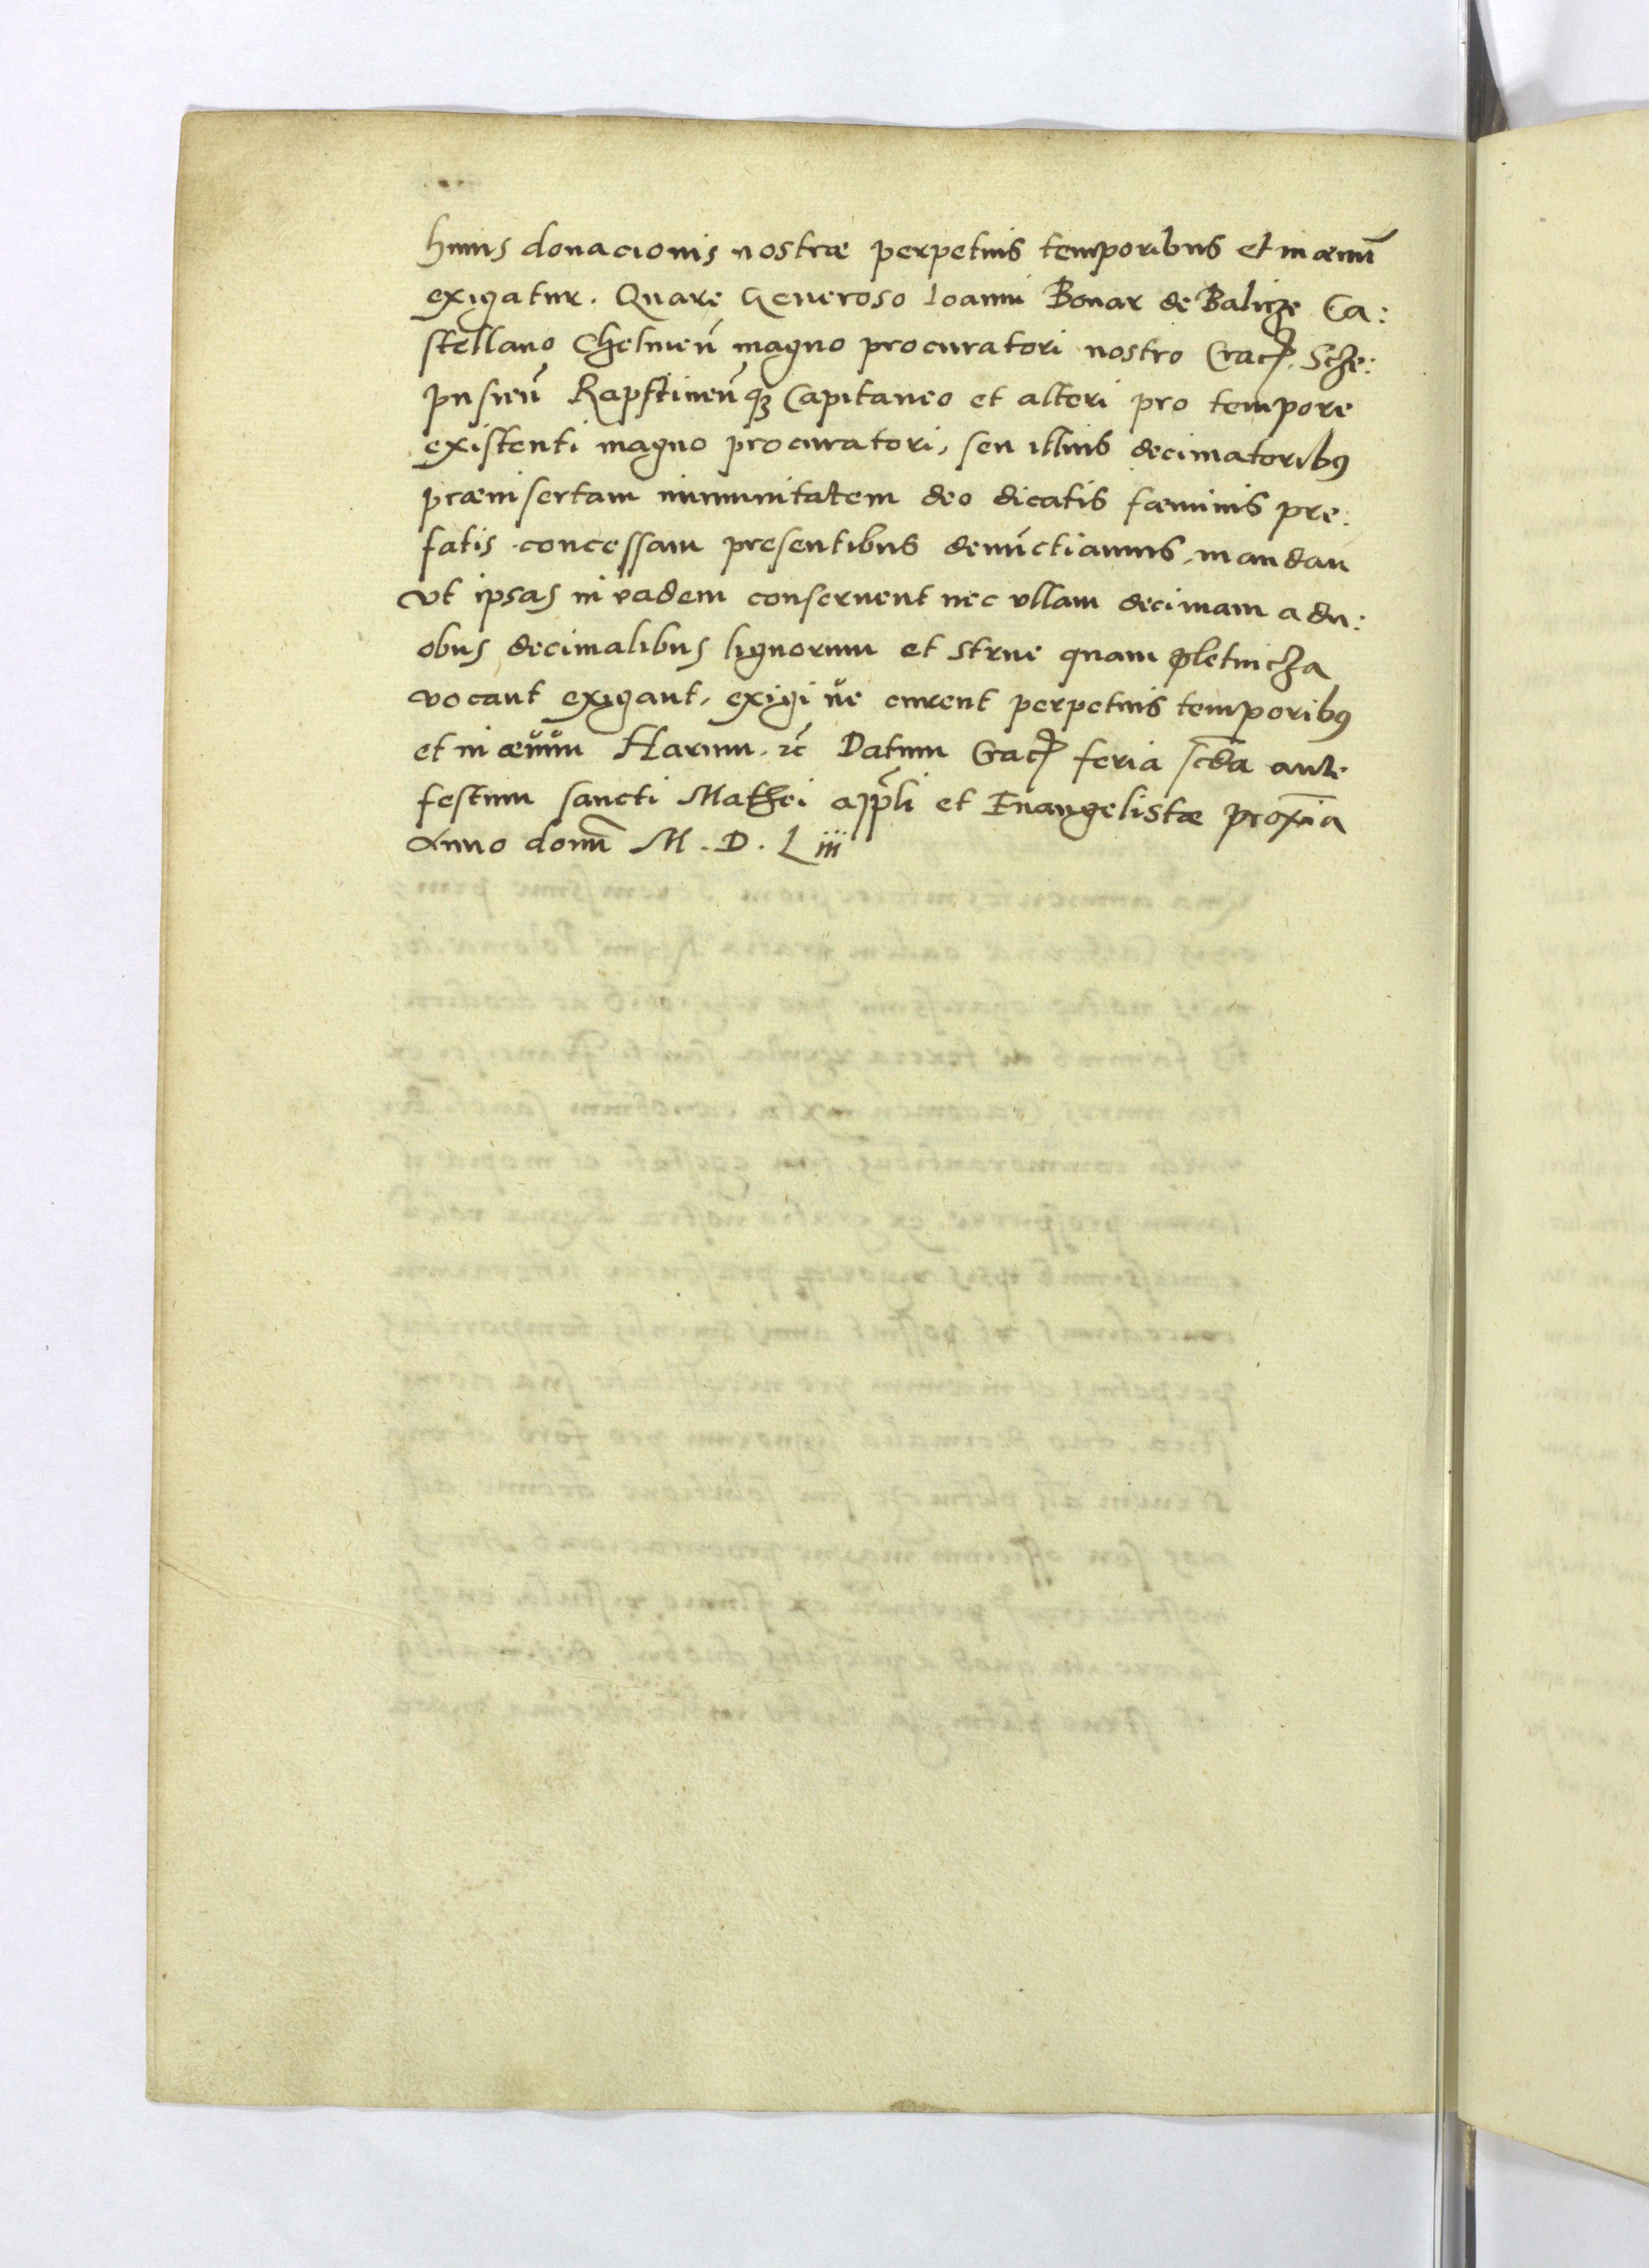 huius donacionis nostræ perpetuis temporibus et in æuū
exigatur. Quare Generoso Ioanni Bonar de Balicze Ca:
stellano Chelmeñ magno procuratori nostro Crač. Scze:
pusieñ Rapstineñqꝫ Capitaneo et alteri pro tempore
existenti magno procuratori, seu illius decimatoribꝰ
præinsertam immunitatem deo dicatis fæminis pre:
fatis concessam presentibus denūctiamus, mandañ
vt ipsas in eadem conseruent nec vllam decimam a du:
obus decimalibus lignorum et strue quam pletnicza
vocant exigant, exigi ve curent perpetuis temporibꝰ
et in æuum Harum ꝛč Datum Crač feria scda ante
festum sancti Mathei appli et Euangelistæ proxīa
Anno domī M. D. Liii